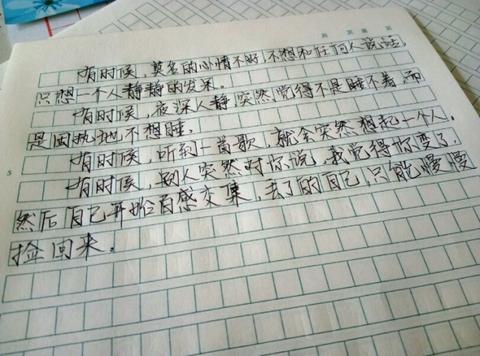 有时候，莫名的心情不好，不想和任何人说话，
只想一个人静静的发呆。
有时候，夜深人静，突然觉得不是睡不着，而
是固执地不想睡。
有时候，听到一首歌，就会突然想起一个人。
有时候，别人突然对你说，我觉得你变了，
然后自己开始百感交集，丢了的自己，只能慢慢
捡回来。